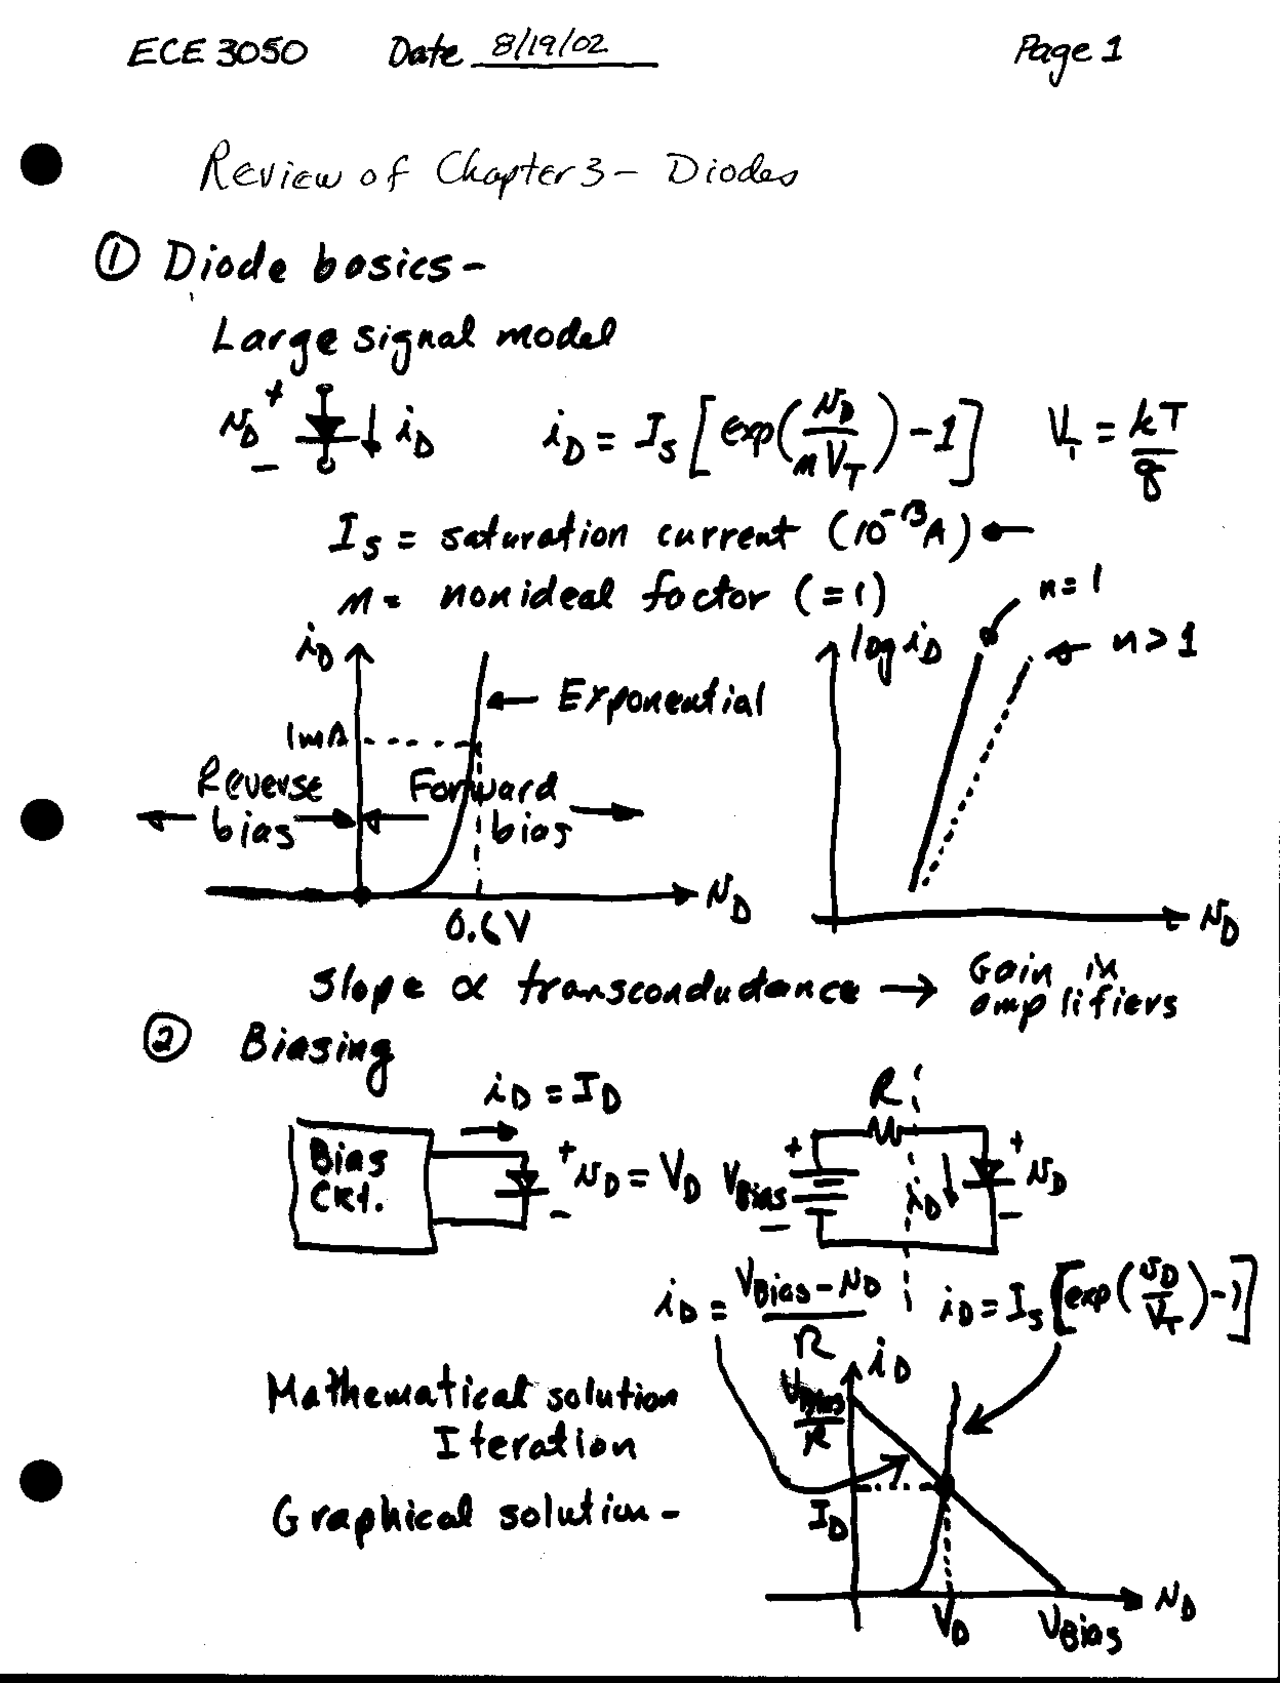 ECE 3050 Date 8/19/02 Page 1
Review of Chapter 3 - Diodes
① Diode basics -
Large signal model
v_D + - i_D i_D = I_S [exp(v_D / nV_T) - 1] V_T = kT / q
I_S = saturation current (10^-13 A)
n = nonideal factor (=1)
i_D
Exponential
1mA
Reverse bias
Forward bias
0.6V
v_D
log i_D
n=1
n>1
v_D
Slope ∝ transconductance → Gain in amplifiers
② Biasing
i_D = I_D
Bias
Ckt.
+ v_D = V_D -
R
+ V_Bias -
i_D
+ v_D -
i_D = (V_Bias - v_D) / R
i_D = I_S [exp(v_D / V_T) - 1]
Mathematical solution
Iteration
Graphical solution -
i_D
V_Bias / R
I_D
V_D
V_Bias
v_D